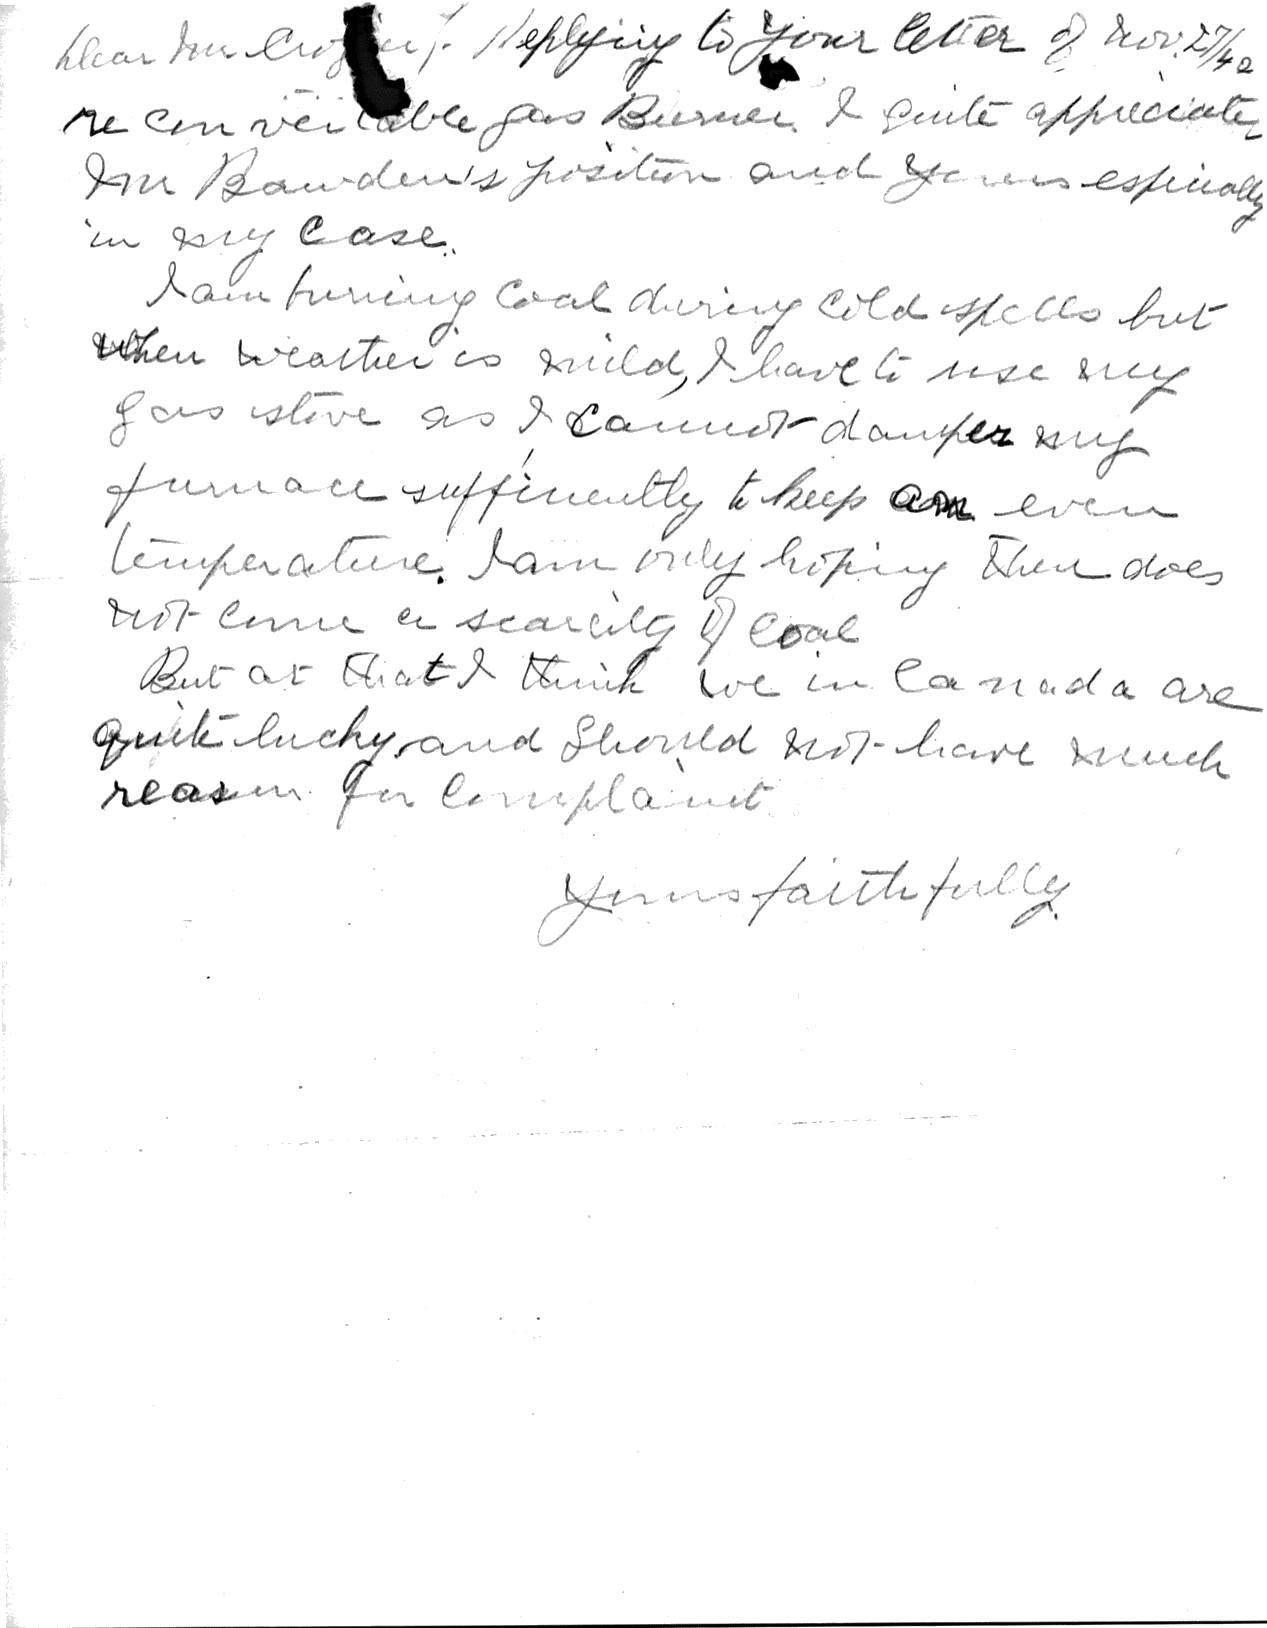 Dear Mr Crozier/. Replying to your letter of Nov. 27/42
re convertable gas Burner. I quite appreciate
Mr Bawden's position and yours espically
in my case.
I am burning Coal during Cold spells but
when weather is mild, I have to use my
gas stove as I cannot damper my
furnace sufficently to keep an even
temperature. I am only hoping there does
not come a scarcity of Coal
But at that I think we in Canada are
quite lucky, and should not have much
reason for Complaint
Yours faithfully.